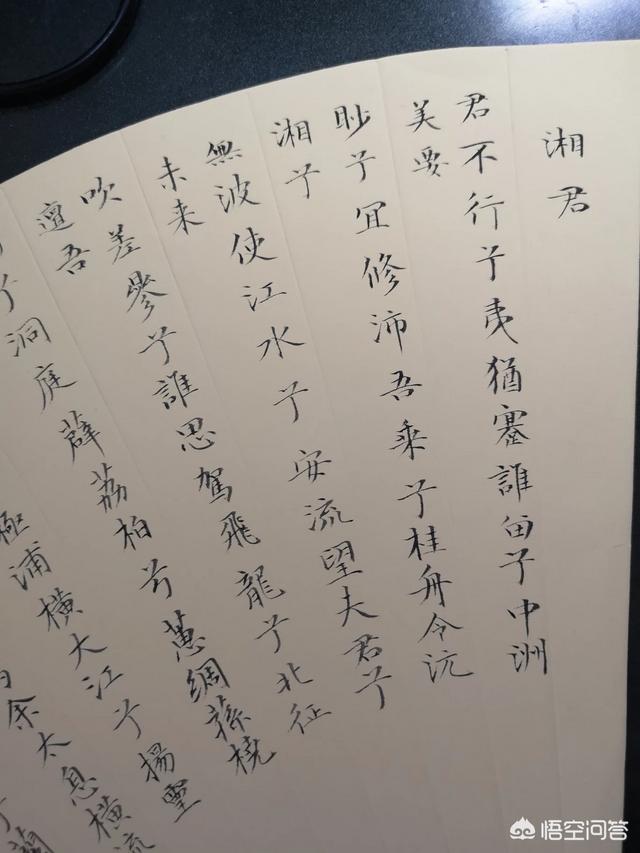 湘君
君不行兮夷猶蹇誰留兮中洲
美要
眇兮宜修沛吾乘兮桂舟令沅
湘兮
無波使江水兮安流望夫君兮
未来
吹差參兮誰思駕飛龍兮北征
邅吾
兮洞庭薜荔柏兮蕙綢蓀橈
極浦橫大江兮揚靈
余太息橫流
兮蘭
悟空问答